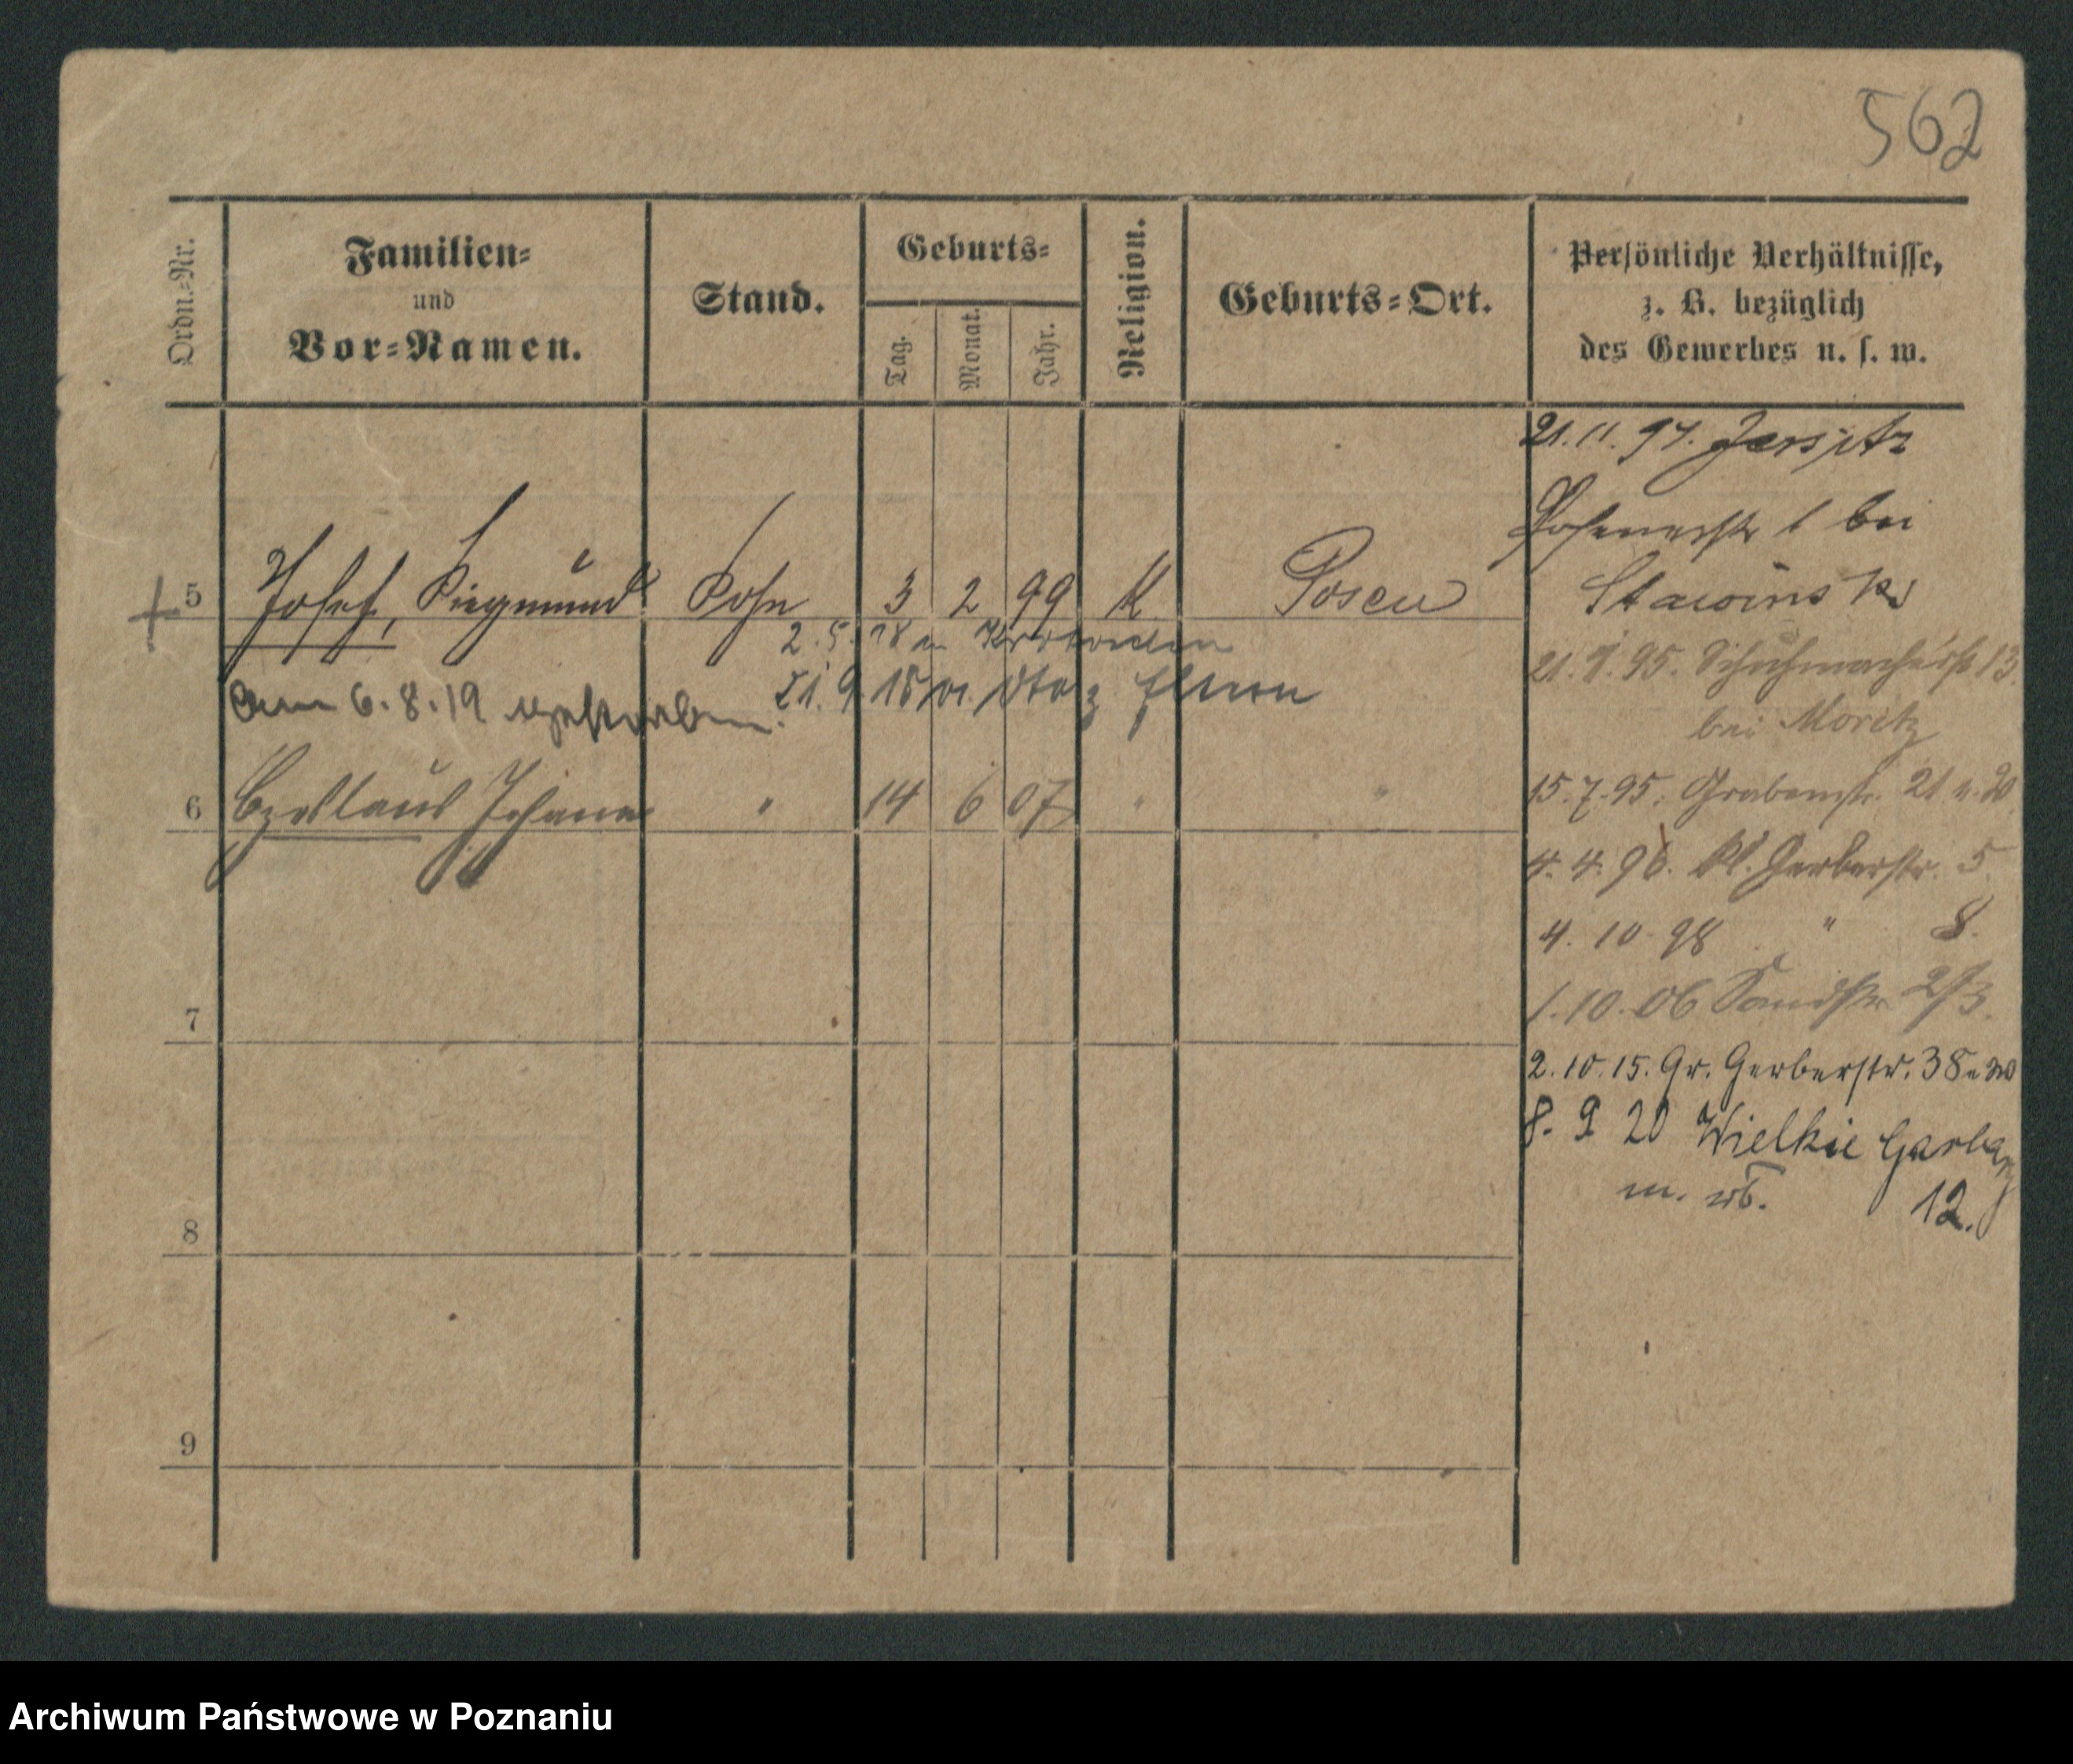 562
Ordn.-Nr.
Familien-
und
Vor-Namen.
Stand.
Geburts-
Tag.
Monat.
Jahr.
Religion.
Geburts-Ort.
Persönliche Verhältnisse,
z. B. bezüglich
des Gewerbes u. s. w.
21. 11. 94. Jersitz
Posenerstr 1 bei
Stawinski
5 Josef, Siegmund Sohn 3 2 99 K Posen
2. 5. 18 in Krotoschin
21. 9. 18 Eltern
am 6. 8. 19 gestorben.
21. 1. 95. Schuhmacherstr 13
bei Moritz
6 Czeslaus Johann " 14 6 07 " "
15. 7. 95. Grabenstr. 21
4. 4. 96. Kl. Gerberstr. 5
4. 10 98 " 8.
1. 10. 06 Sandstr 2/3.
7
2. 10. 15. Gr. Gerberstr. 38
8. 9 20 Wielkie Garbary
m. 12.
8
9
Archiwum Państwowe w Poznaniu